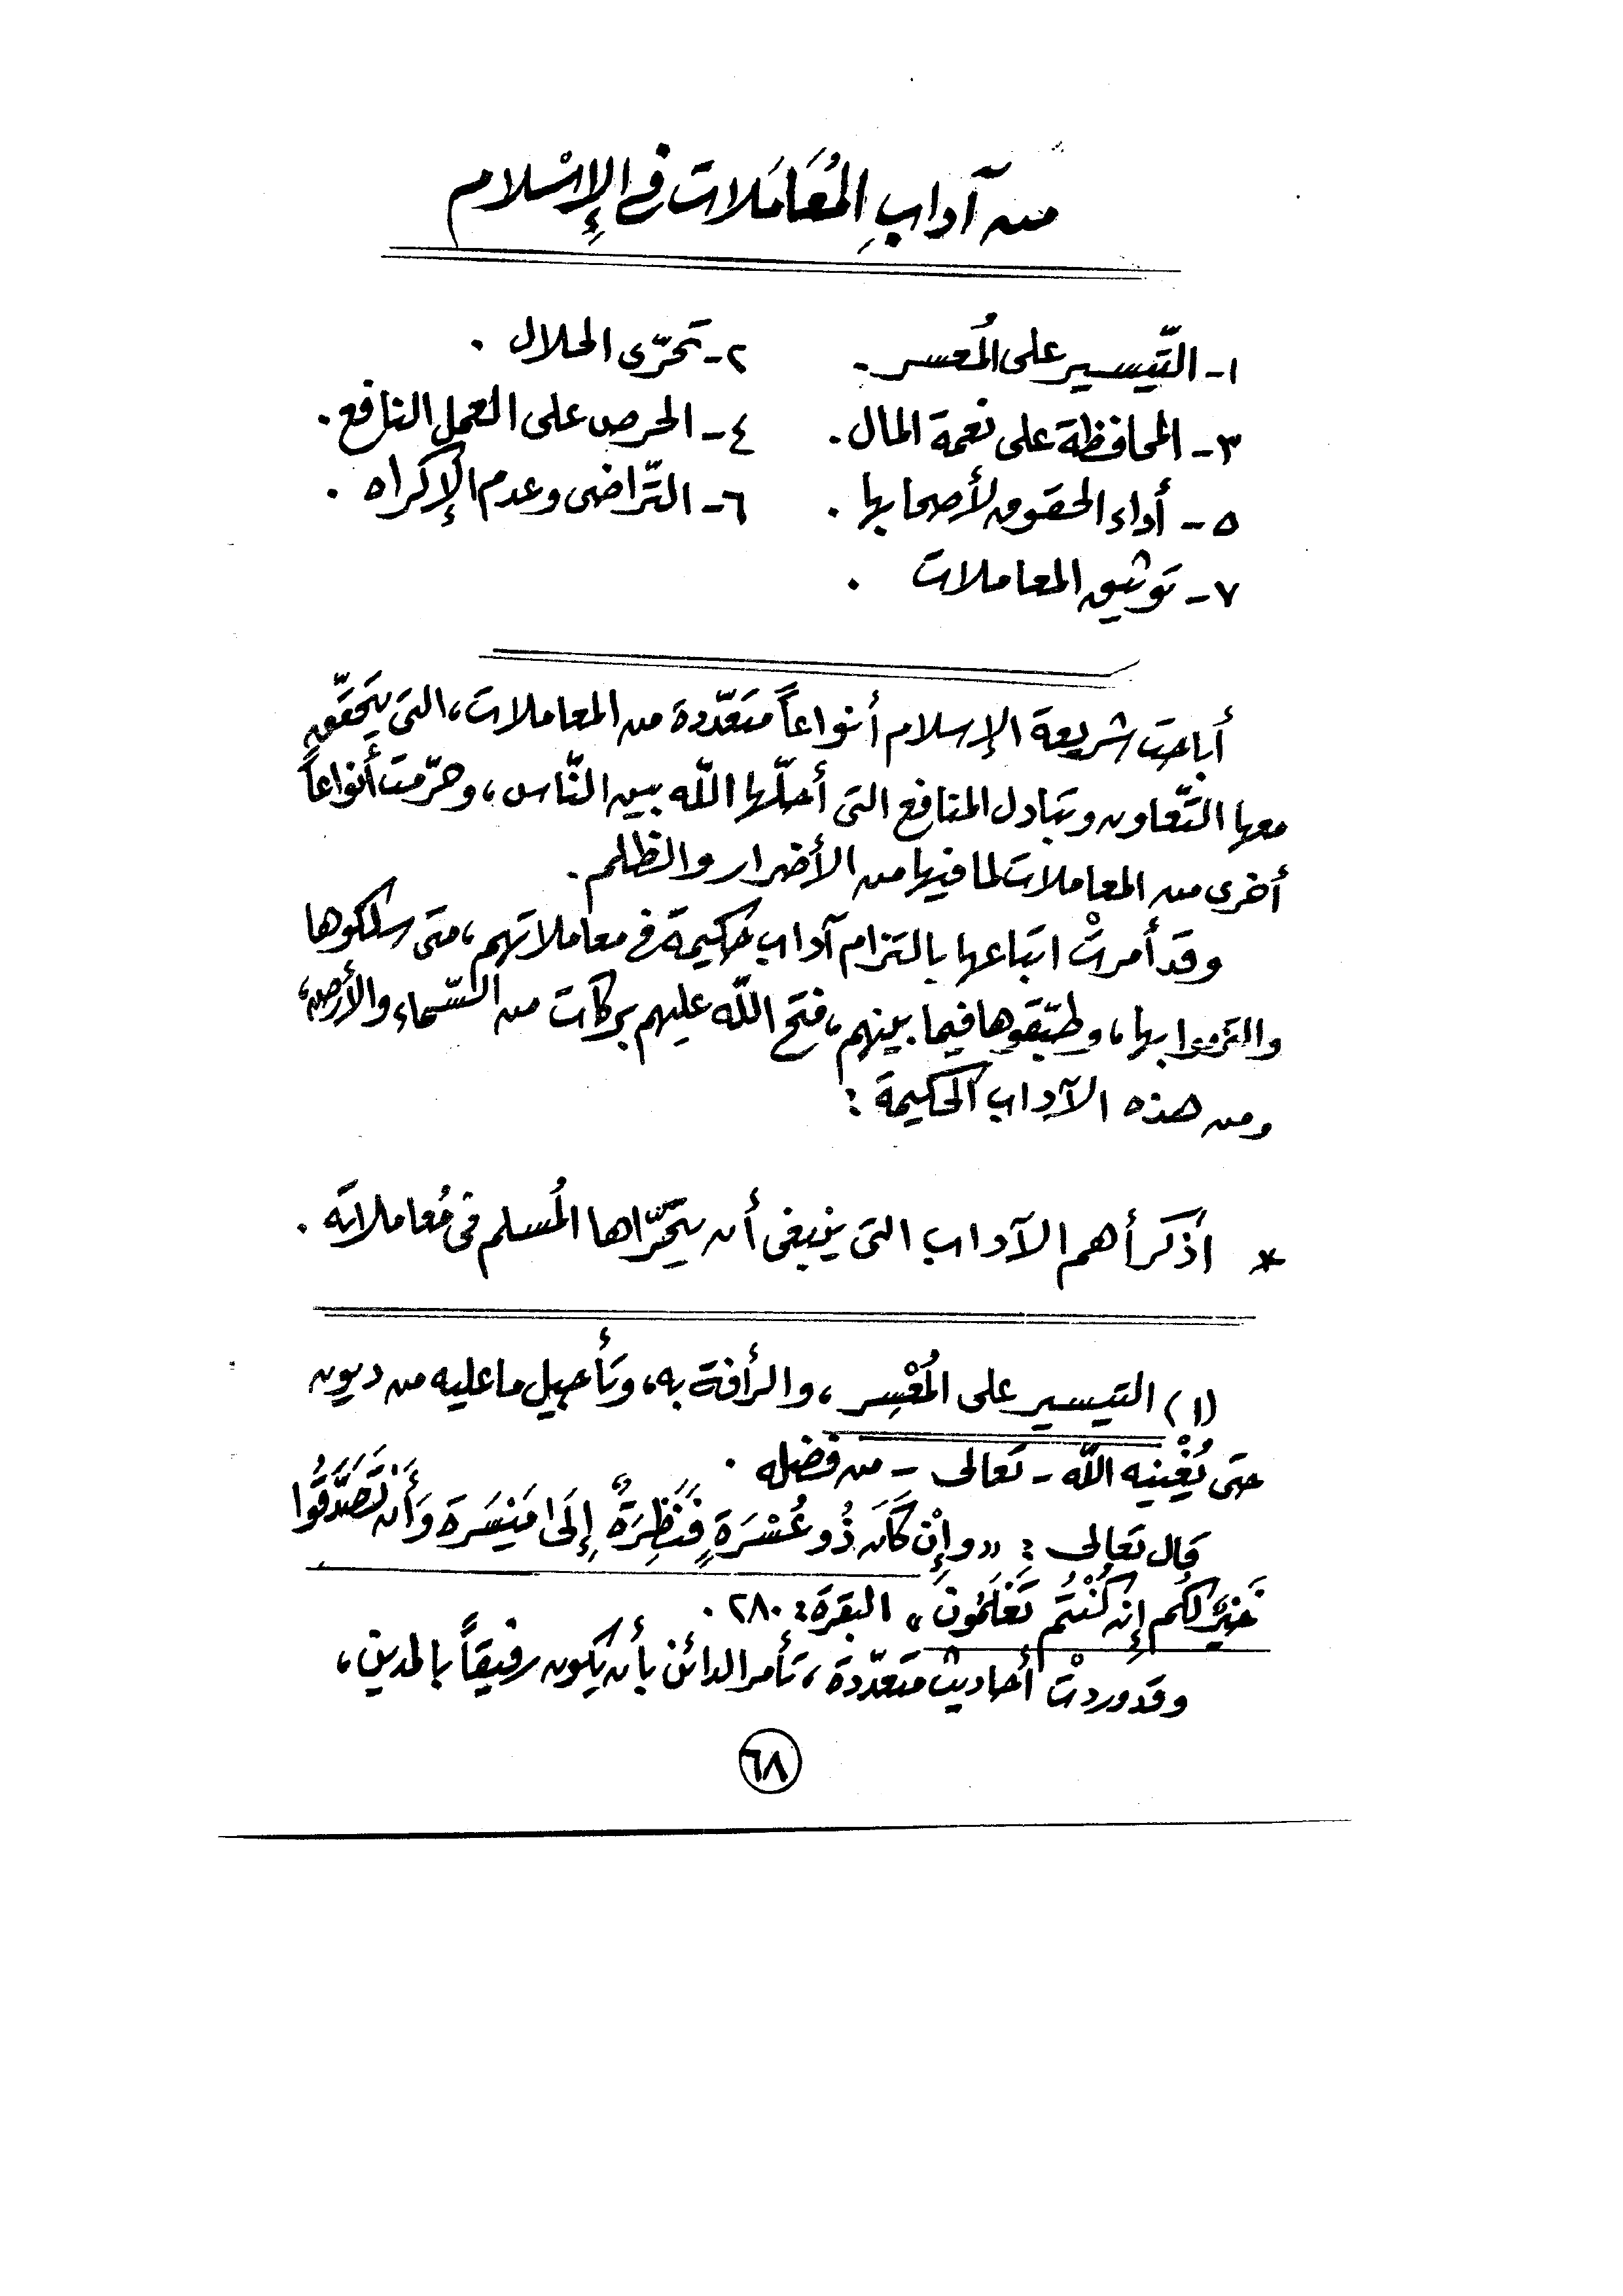 من آدابِ المُعَامَلات في الإِسْلام
١- التّيسير على المُعسر. ٢- تَحرّى الحلال.
٣- المحافظة على نعمة المال. ٤- الحرص على العمل النافع.
٥- أداء الحقوق لأصحابها. ٦- التّراضى وعدم الإكراه.
٧- توثيق المعاملات.
أباحت شريعة الإسلام أنواعاً متعدّدة من المعاملات، التى يتحقّق
معها التّعاون وتبادل المنافع التى أحلّها اللّه بين النّاس، وحرّمت أنواعاً
أخرى من المعاملات لما فيها من الأضرار والظلم.
وقد أمرتْ اتباعها بالتزام آداب حكيمة في معاملاتهم، متى سلكوها
والتزموا بها، وطبّقوها فيما بينهم، فتح اللّه عليهم بركات من السّماء والأرض،
ومن هذه الآداب الحكيمة:
* أذكر أهم الآداب التى ينبغى أن يتحرّاها المُسلم فى مُعاملاته.
(١) التيسير على المُعْسِر، والرأفة به، وتأجيل ما عليه من ديون
حتى يُغْنيه اللّه - تعالى - من فضله.
قال تعالى: «وإِنْ كَانَ ذُو عُسْرَةٍ فَنَظِرَةٌ إِلَى مَيْسَرَة وَأَن تَصَدَّقُوا
خَيْرٌ لكُم إِن كُنْتُم تَعْلَمُونَ» البقرة: ٢٨٠.
وقد وردتْ أحاديث متعدّدة، تأمر الدائن بأن يكون رفيقاً بالمدين،
٦٨